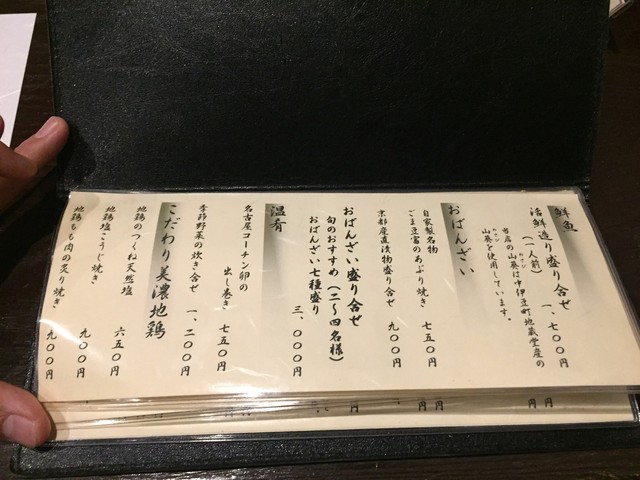 鮮魚
活鮮造り盛り合せ
(一人前) 一、七〇〇円
当店の山葵は中伊豆町地蔵堂産の
山葵を使用しています。
おばんざい
自家製名物
ごま豆富のあぶり焼き 七五〇円
京都産直漬物盛り合せ 九〇〇円
おばんざい盛り合せ
旬のおすすめ(二〜四名様)
おばんざい七種盛り 三、〇〇〇円
温肴
名古屋コーチン卵の
出し巻き 七五〇円
季節野菜の炊き合せ 一、二〇〇円
こだわり美濃地鶏
地鶏のつくね天然塩 六五〇円
地鶏塩こうじ焼き 九〇〇円
地鶏もも肉の炙り焼き 九〇〇円